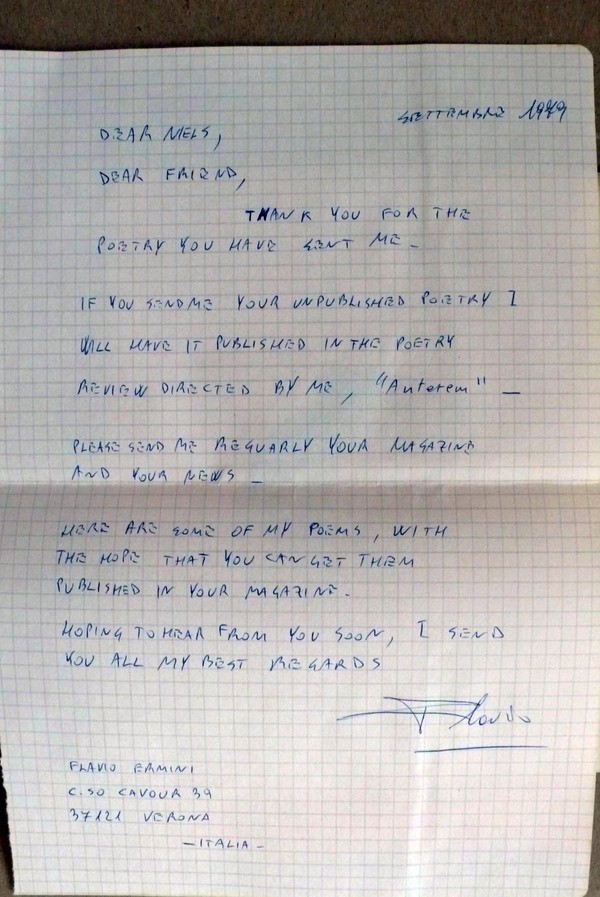 SETTEMBRE 1979
DEAR NIELS,
DEAR FRIEND,
THANK YOU FOR THE
POETRY YOU HAVE SENT ME_
IF YOU SEND ME YOUR UNPUBLISHED POETRY I
WILL HAVE IT PUBLISHED IN THE POETRY
REVIEW DIRECTED BY ME, "Anterem" _
PLEASE SEND ME REGUARLY YOUR MAGAZINE
AND YOUR NEWS _
HERE ARE SOME OF MY POEMS, WITH
THE HOPE THAT YOU CAN GET THEM
PUBLISHED IN YOUR MAGAZINE.
HOPING TO HEAR FROM YOU SOON, I SEND
YOU ALL MY BEST REGARDS
Flavio
FLAVIO ERMINI
C.SO CAVOUR 39
37121 VERONA
-ITALIA-